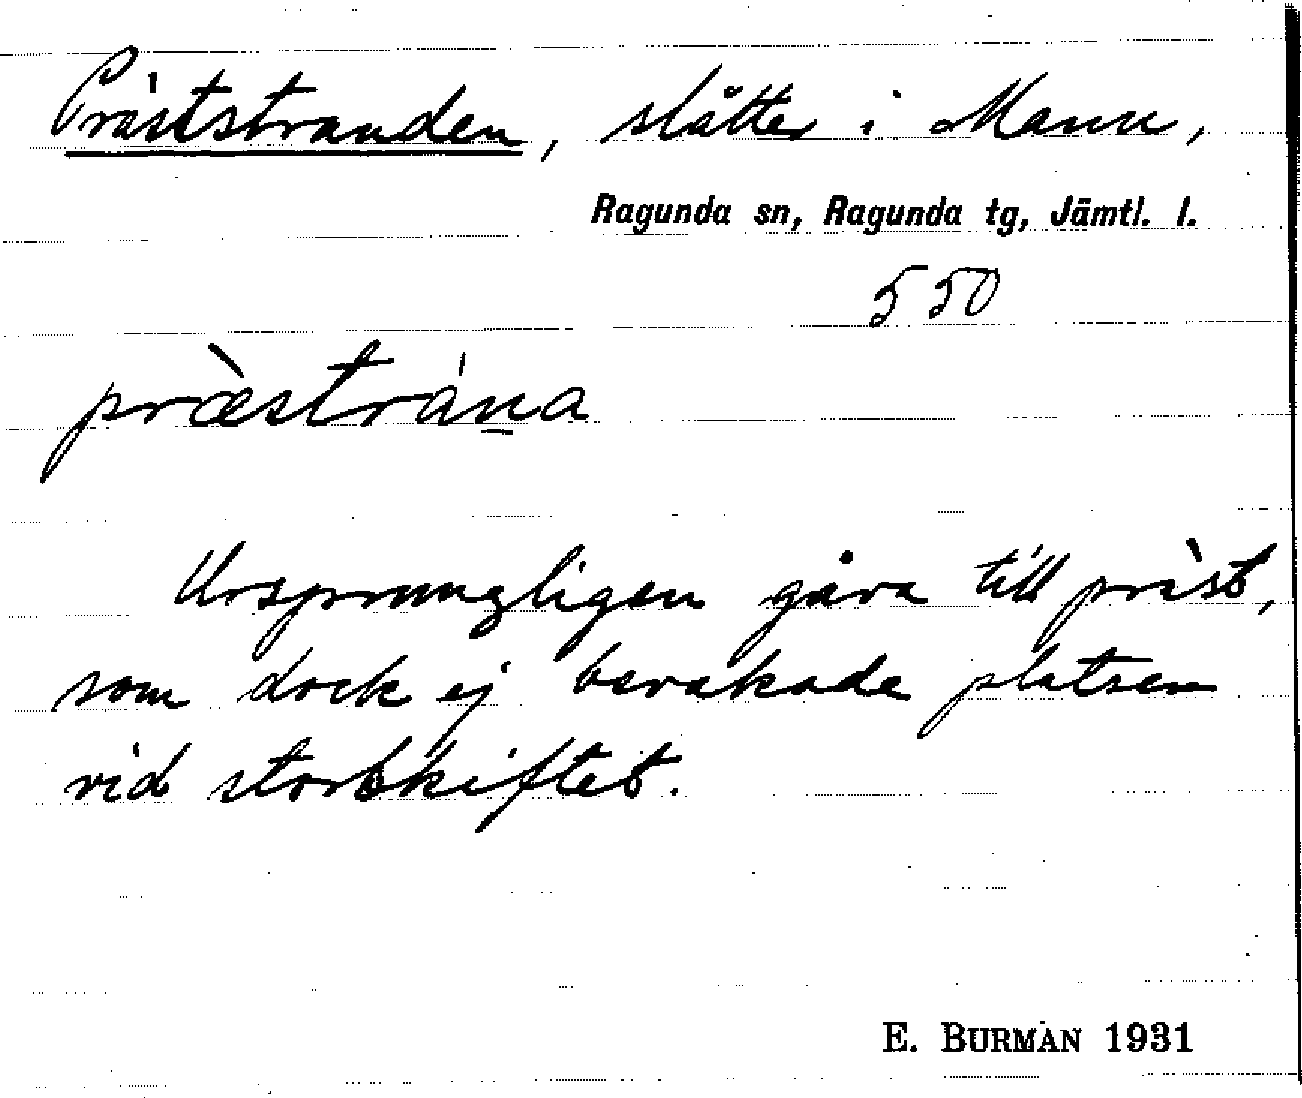 Präststranden, slåtter i Mann,
Ragunda sn, Ragunda tg, Jämtl. l.
550
præ̀strána
Ursprungligen gåva till präst,
som dock ej bevakade platsen
vid storskiftet.
E. BURMAN 1931